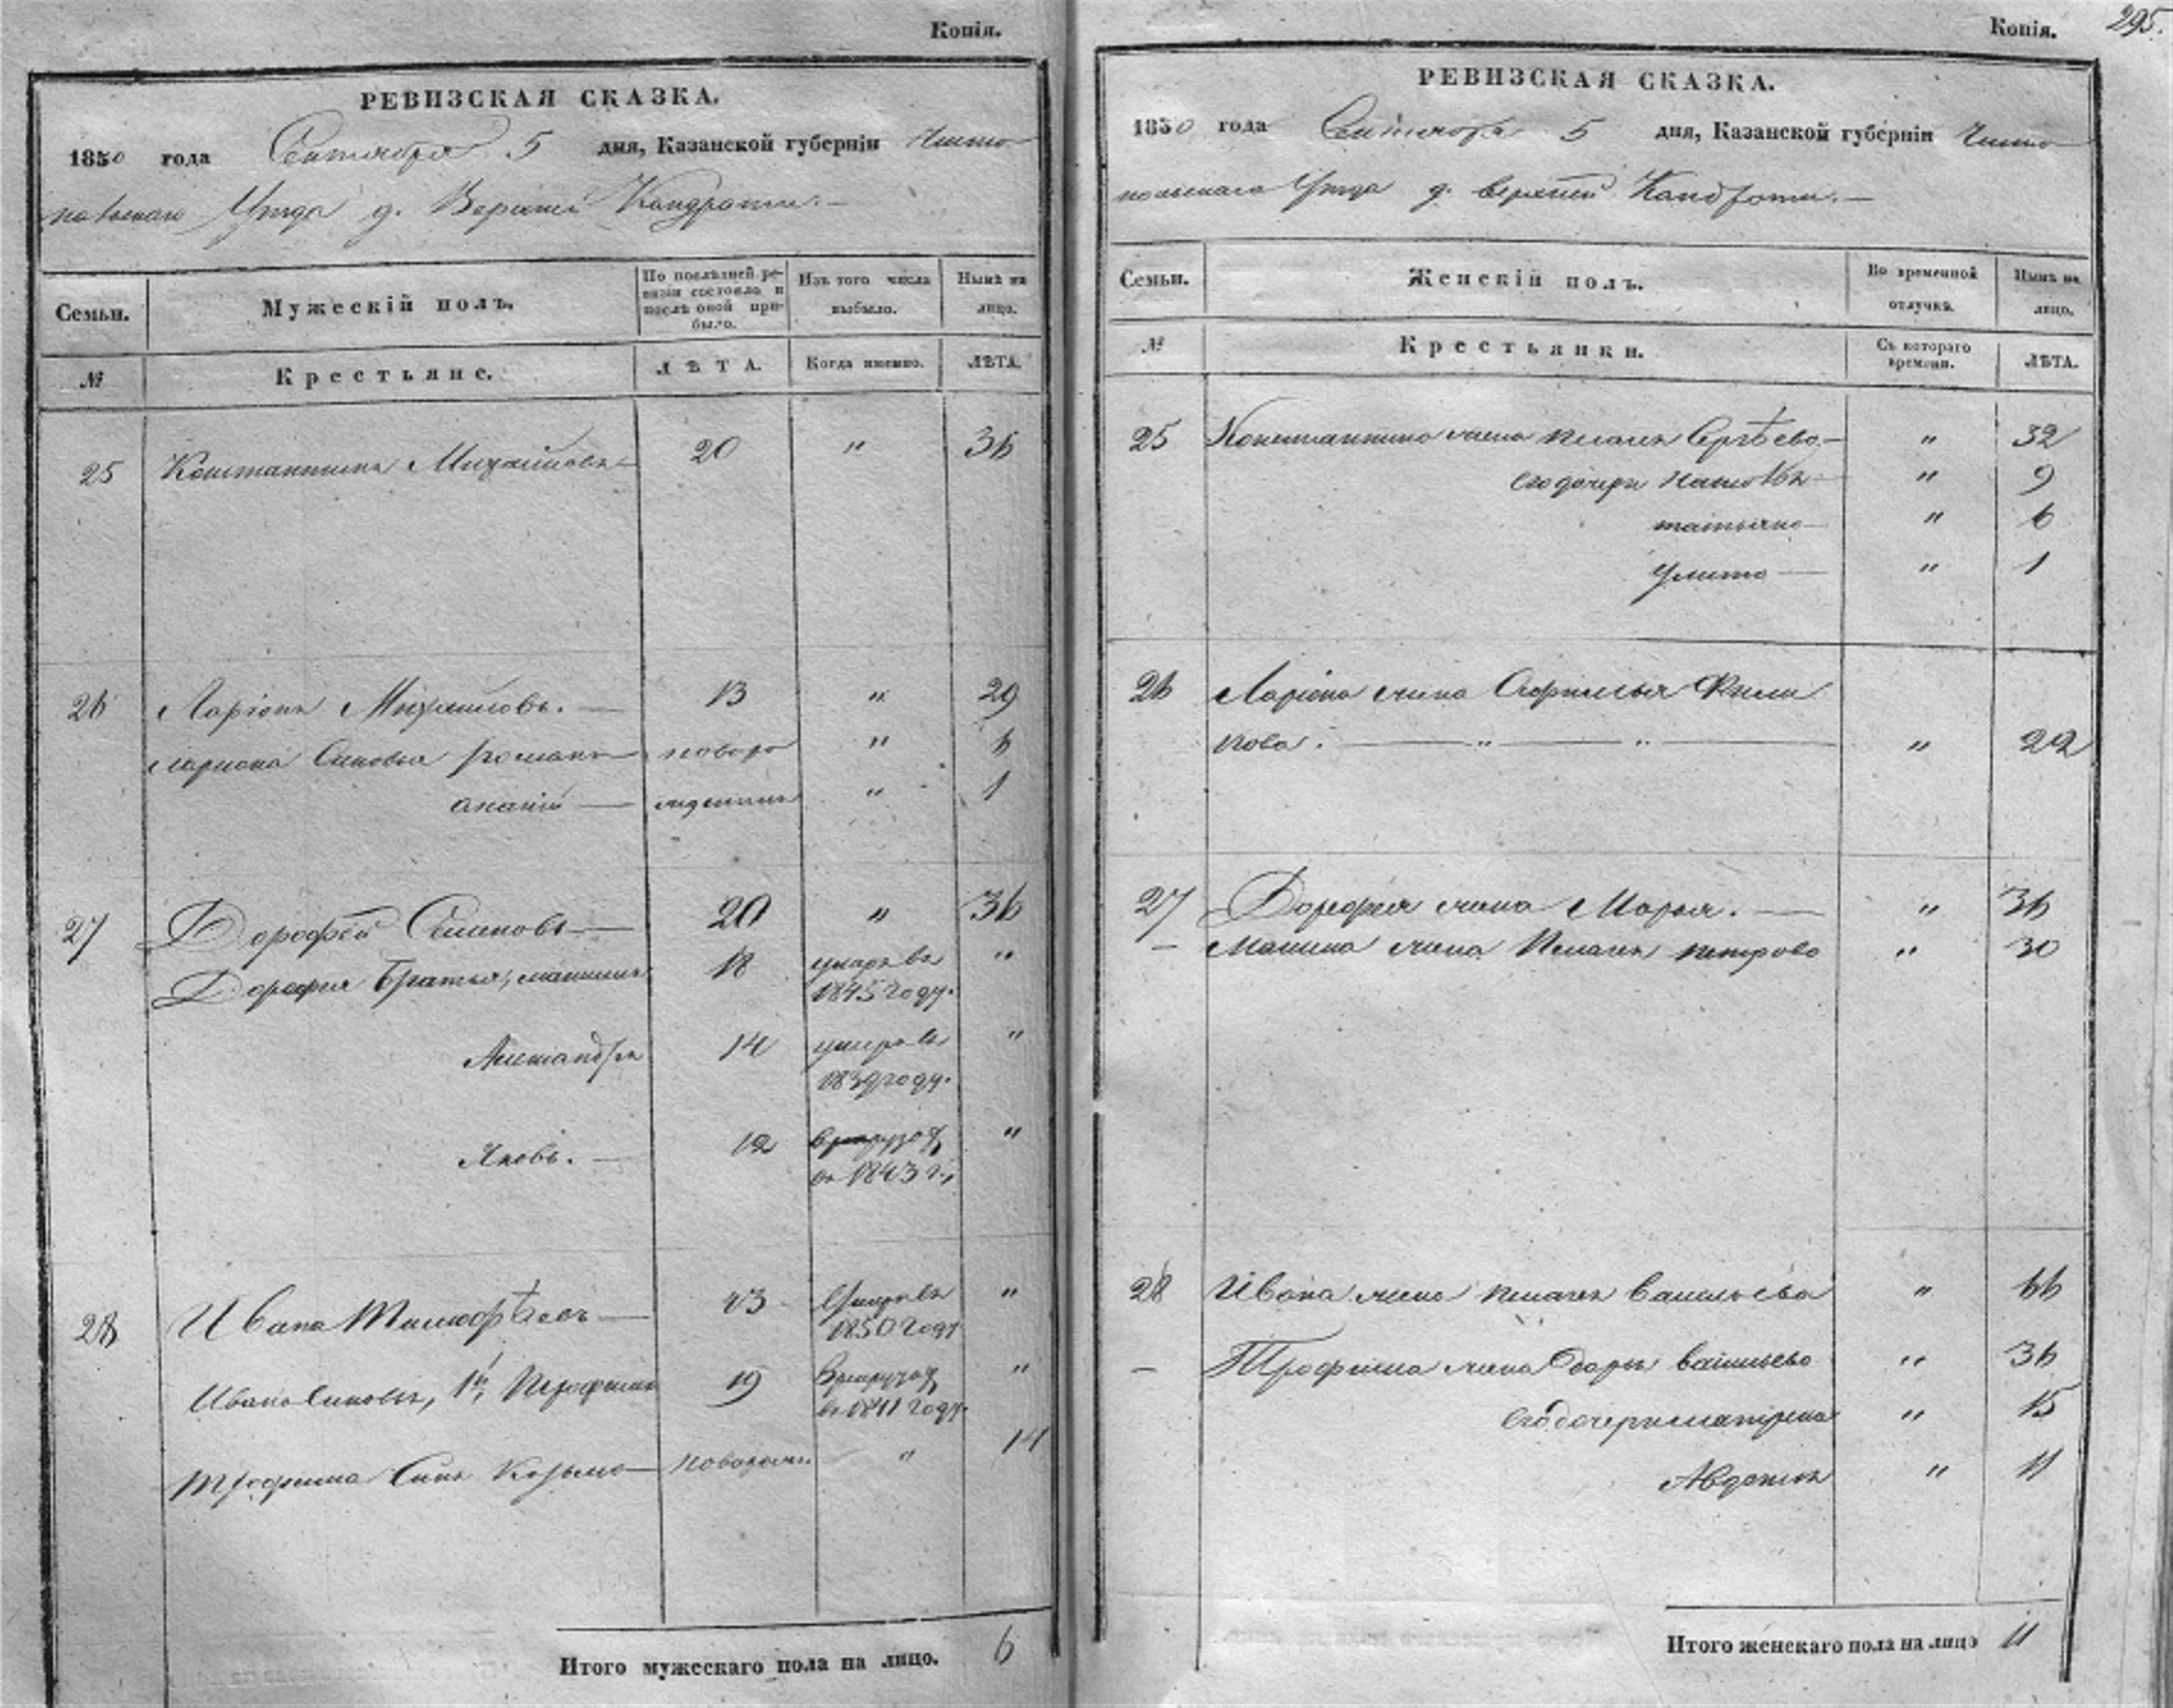 Копія.
РЕВИЗСКАЯ СКАЗКА.
1850 года Сентября 5 дня, Казанской губерніи Чисто
польскаго Уезда д. Верхней Кондраты.—
Семьи. Мужескій полъ. По послѣдней ревизіи состояло и послѣ оной прибыло. Изъ того числа выбыло. Нынѣ на лицо.
№ Крестьяне. ЛѢТА. Когда именно. ЛѢТА.
25 Константинъ Михайловъ 20 " 36
26 Ларіонъ Михайловъ. — 13 " 29
Лариона Сыновья Романъ новоро " 6
Ананій — жденные " 1
27 Дорофей Семеновъ — 20 " 36
Дорофея Братья, 18 умеръ въ "
1845 году.
Александръ 14 умеръ въ "
1839 году.
Яковъ. — 12 в рекруты "
въ 1843 г.
28 Иванъ Тимофѣевъ — 43 Умеръ въ "
1850 году
Ивана Сыновья, 1й Трофимъ 19 В рекруты "
въ 1841 году.
Трофима Сынъ Козьма — новорож. " 14
Итого мужескаго пола на лицо. 6
Копія. 295.
РЕВИЗСКАЯ СКАЗКА.
1850 года Сентября 5 дня, Казанской губерніи Чисто
польскаго Уезда д. Верхней Кондраты.—
Семьи. Женскій полъ. Во временной отлучкѣ. Нынѣ на лицо.
№ Крестьянки. Съ котораго времени. ЛѢТА.
25 Константина жена Сергѣева — " 32
его дочери " 9
татьяна — " 6
Улита — " 1
26 Ларіона жена Офимья Фили
пова. — " — " — " 22
27 Дорофея жена Марья. — " 36
— жена петрова " 30
28 Ивана жена васильева " 66
— Трофима жена васильева " 36
его дочери матрена " 15
Авдотья " 11
Итого женскаго пола на лицо 11